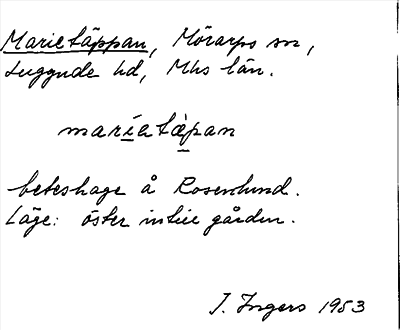 Marietäppan, Mörarps sn,
Luggude hd, Mhs län.
maríatæ̀pan
beteshage å Rosenlund.
Läge: öster intill gården.
I. Ingers 1953